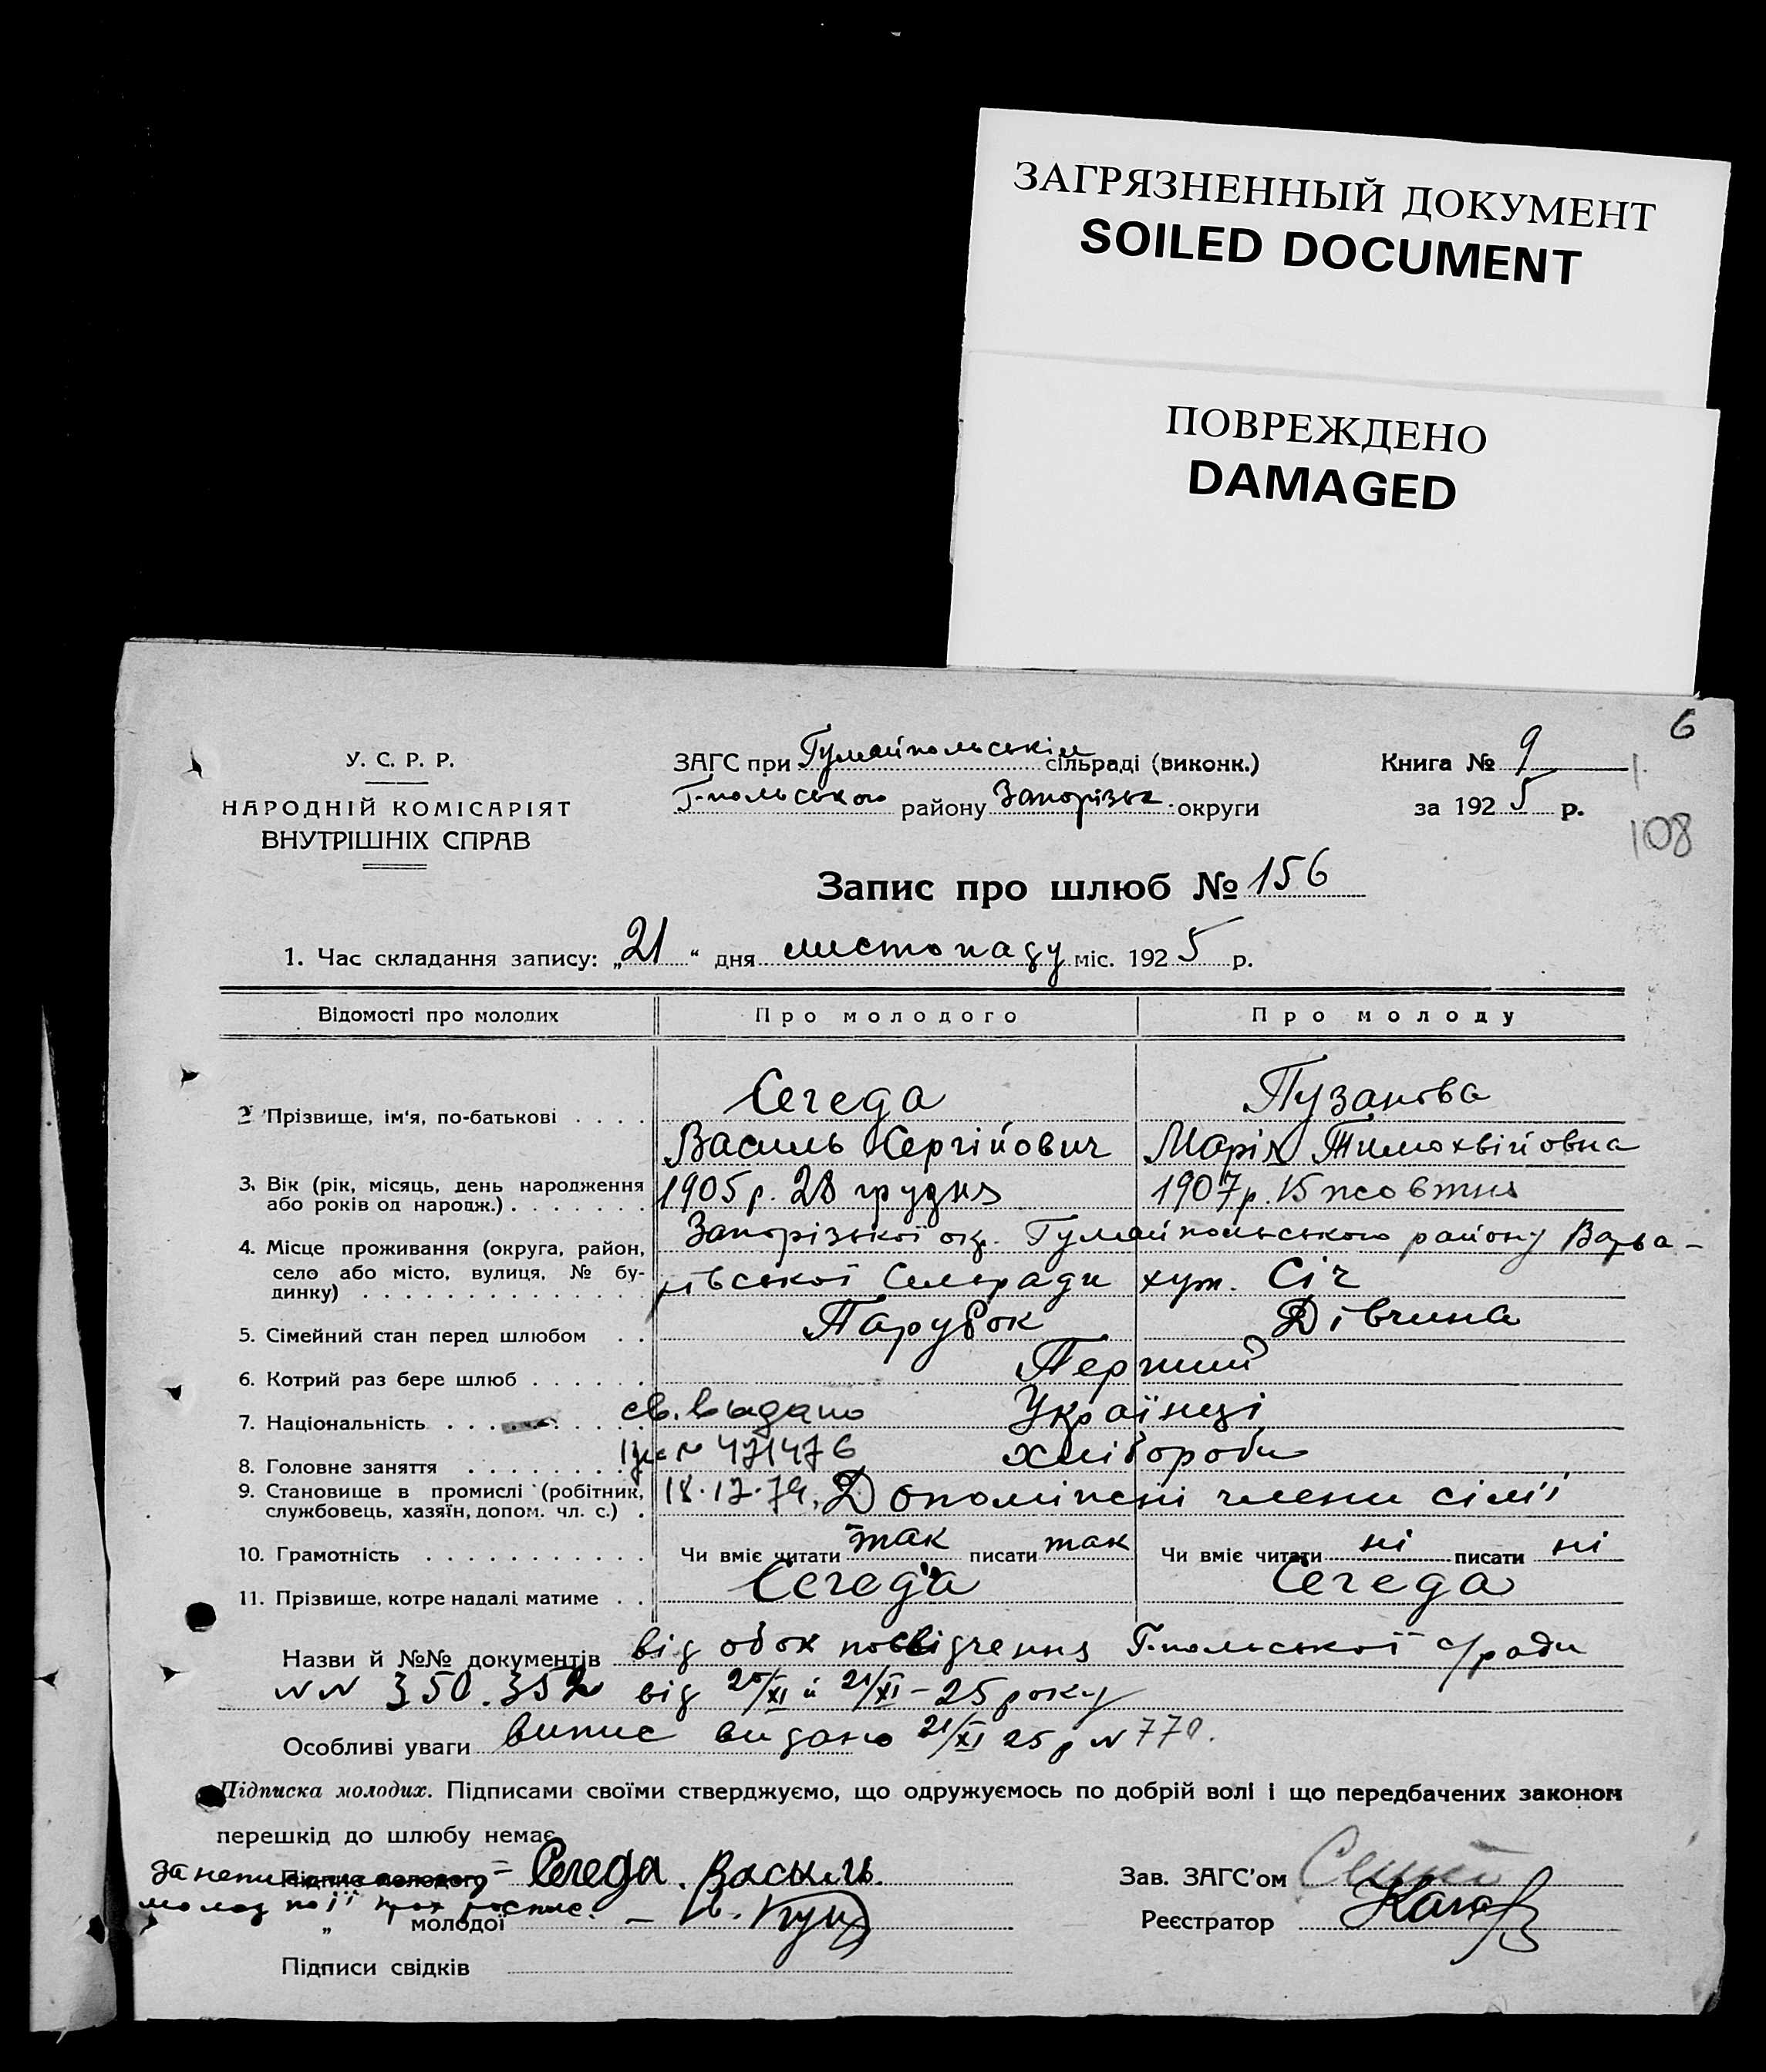 ЗАГРЯЗНЕННЫЙ ДОКУМЕНТ
SOILED DOCUMENT
ПОВРЕЖДЕНО
DAMAGED
6
У. С. Р. Р.
НАРОДНІЙ КОМІСАРІЯТ
ВНУТРІШНІХ СПРАВ
ЗАГС при Гуляйпольськім сільраді (виконк.)
Г-польського району Запорізьк. округи
Книга № 9
за 1925 р.
108
Запис про шлюб № 156
1. Час складання запису: „21“ дня листопаду міс. 1925 р.
Відомості про молодих Про молодого Про молоду
2 Прізвище, ім'я, по-батькові . . . . Сегеда Пузанова
Василь Сергійович Марія Тимохвійовна
3. Вік (рік, місяць, день народження або років од народж.) . . . . . . . 1905 р. 28 грудня 1907 р. 15 жовтня
4. Місце проживання (округа, район, село або місто, вулиця, № будинку) . . . . . . . . . . . . . . Запорізької окр. Гуляйпольського району Варва-
рівської Сельради хут. Січ
5. Сімейний стан перед шлюбом . . Парубок Дівчина
6. Котрий раз бере шлюб . . . . . . Перший
7. Національність . . . . . . . . . св. выдано Українці
8. Головне заняття . . . . . . . . . № 471476 хлібороби
9. Становище в промислі (робітник, службовець, хазяїн, допом. чл. с.) . 18.12.79. Допоміжні члени сілмї
10. Грамотність . . . . . . . . . . . . Чи вміє читати так писати так Чи вміє читати ні писати ні
11. Прізвище, котре надалі матиме . . Сегеда Сегеда
Назви й №№ документів від обох посвідчення Г-польської с/ради
№№ 350.352 від 20/XI й 21/XI-25 року
Особливі уваги випис видано 21/XI 25 р № 770.
Підписка молодих. Підписами своїми стверджуємо, що одружуємось по добрій волі і що передбачених законом
перешкід до шлюбу немає.
Підпис молодого – Сегеда. Василь.
за
молод по її
„ молодої
Зав. ЗАГС'ом
Реєстратор
Підписи свідків